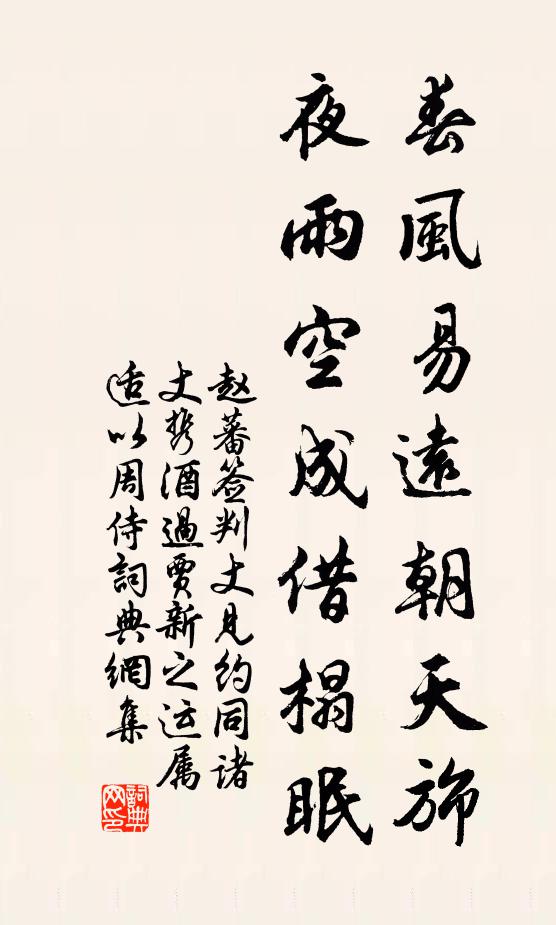 春風易遠朝天旆
夜雨空成借榻眠
赵蕃签判丈見約同諸
丈携酒過賈新之运属
适以周侍詞典網集
詞典网印